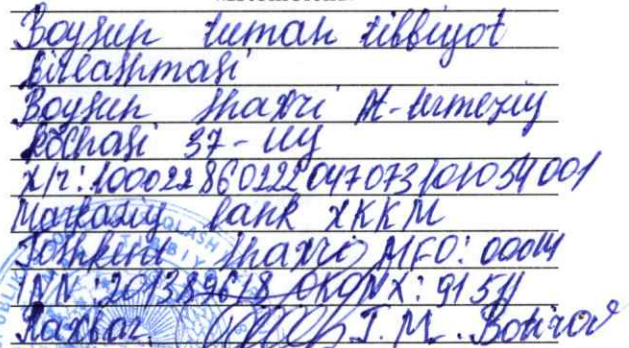 Boysun tuman tibbiyot
birlashmasi
Boysun shaxri At-termeziy
ko'chasi 37-uy
X/r: 100022860222047073101054001
Markaziy bank XKKM
Toshkent shaxri MFO: 00014
INN: 201389618 OKONX: 91511
Raxbar J.M. Botirov